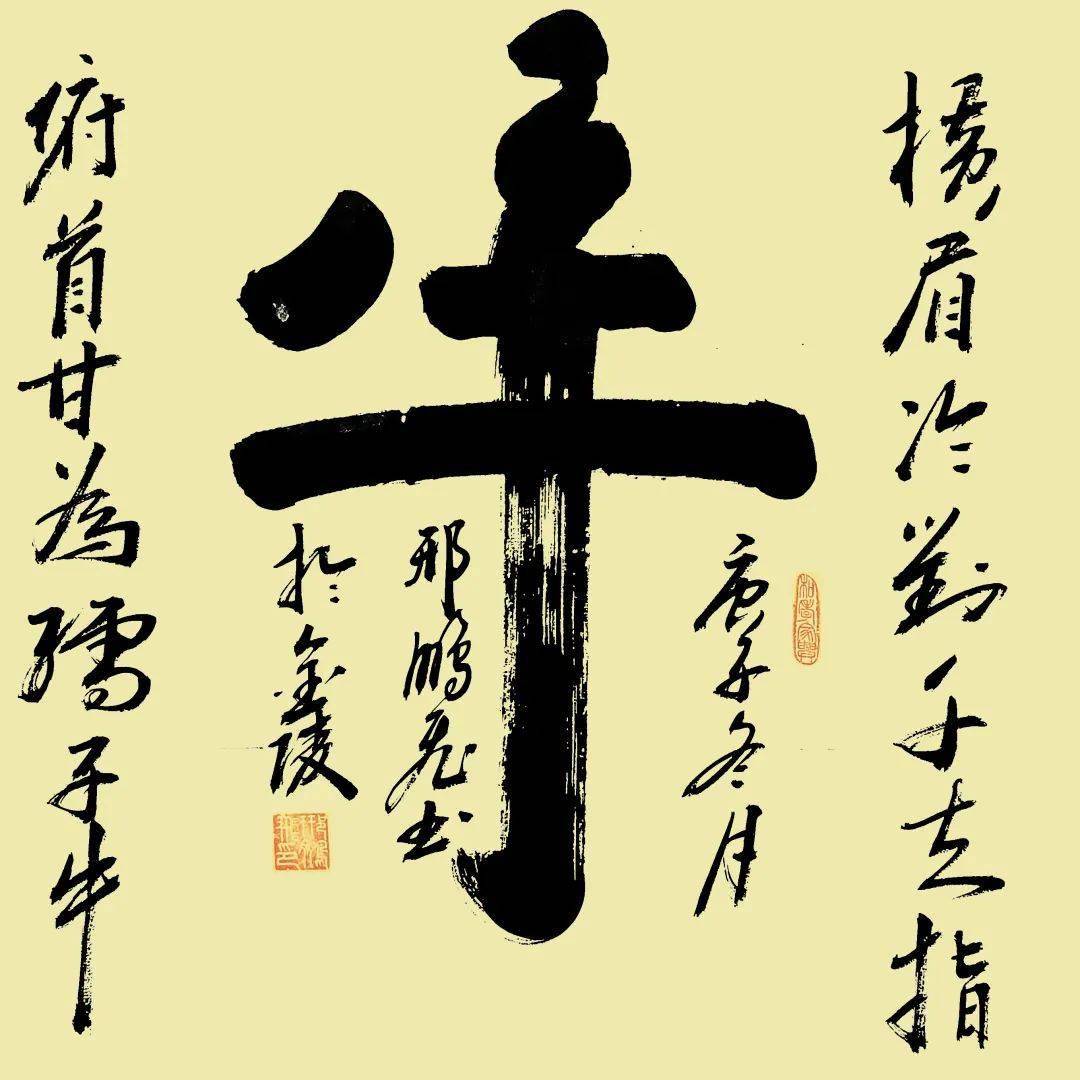 橫眉冷對千夫指
牛
俯首甘為孺子牛
庚子冬月
邢鵬飛书
於金陵